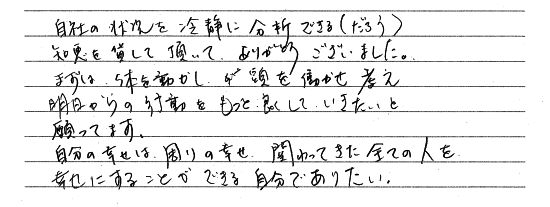 自社の状況を冷静に分析できる(だろう)
知恵を貸して頂いて、ありがとうございました。
まずは、体を動かし、頭を働かせ考え
明日からの行動をもっと良くしていきたいと
願ってます。
自分の幸せは、周りの幸せ、関わってきた全ての人を
幸せにすることができる自分でありたい。